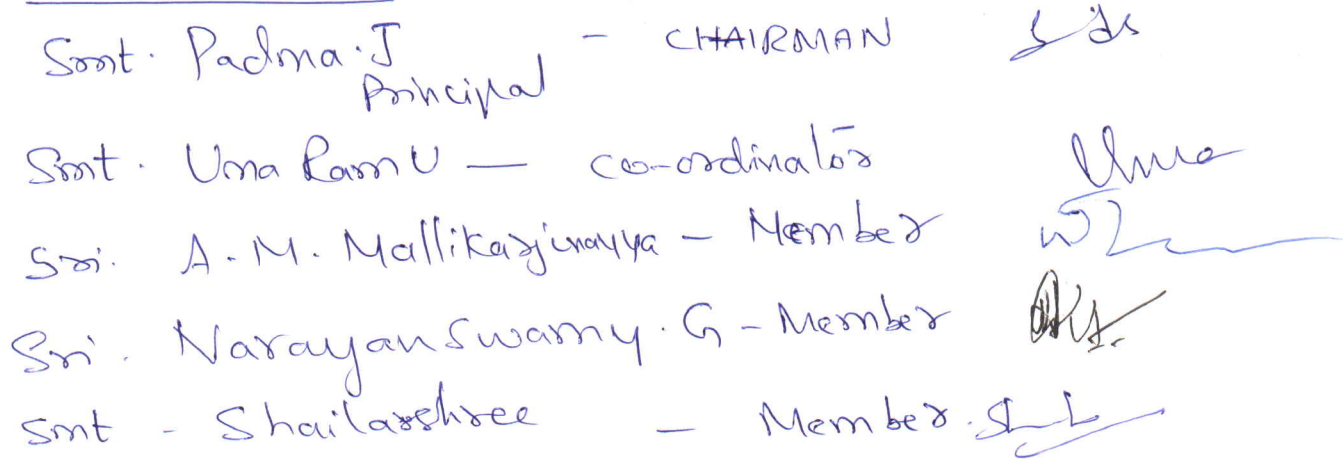 Smt. Padma.J - CHAIRMAN
Principal
Smt. Uma Ram U — co-ordinator Uma
Sri. A.M. Mallikarjunayya - Member
Sri. Narayanswamy.G - Member
Smt - Shailarshree - Member.